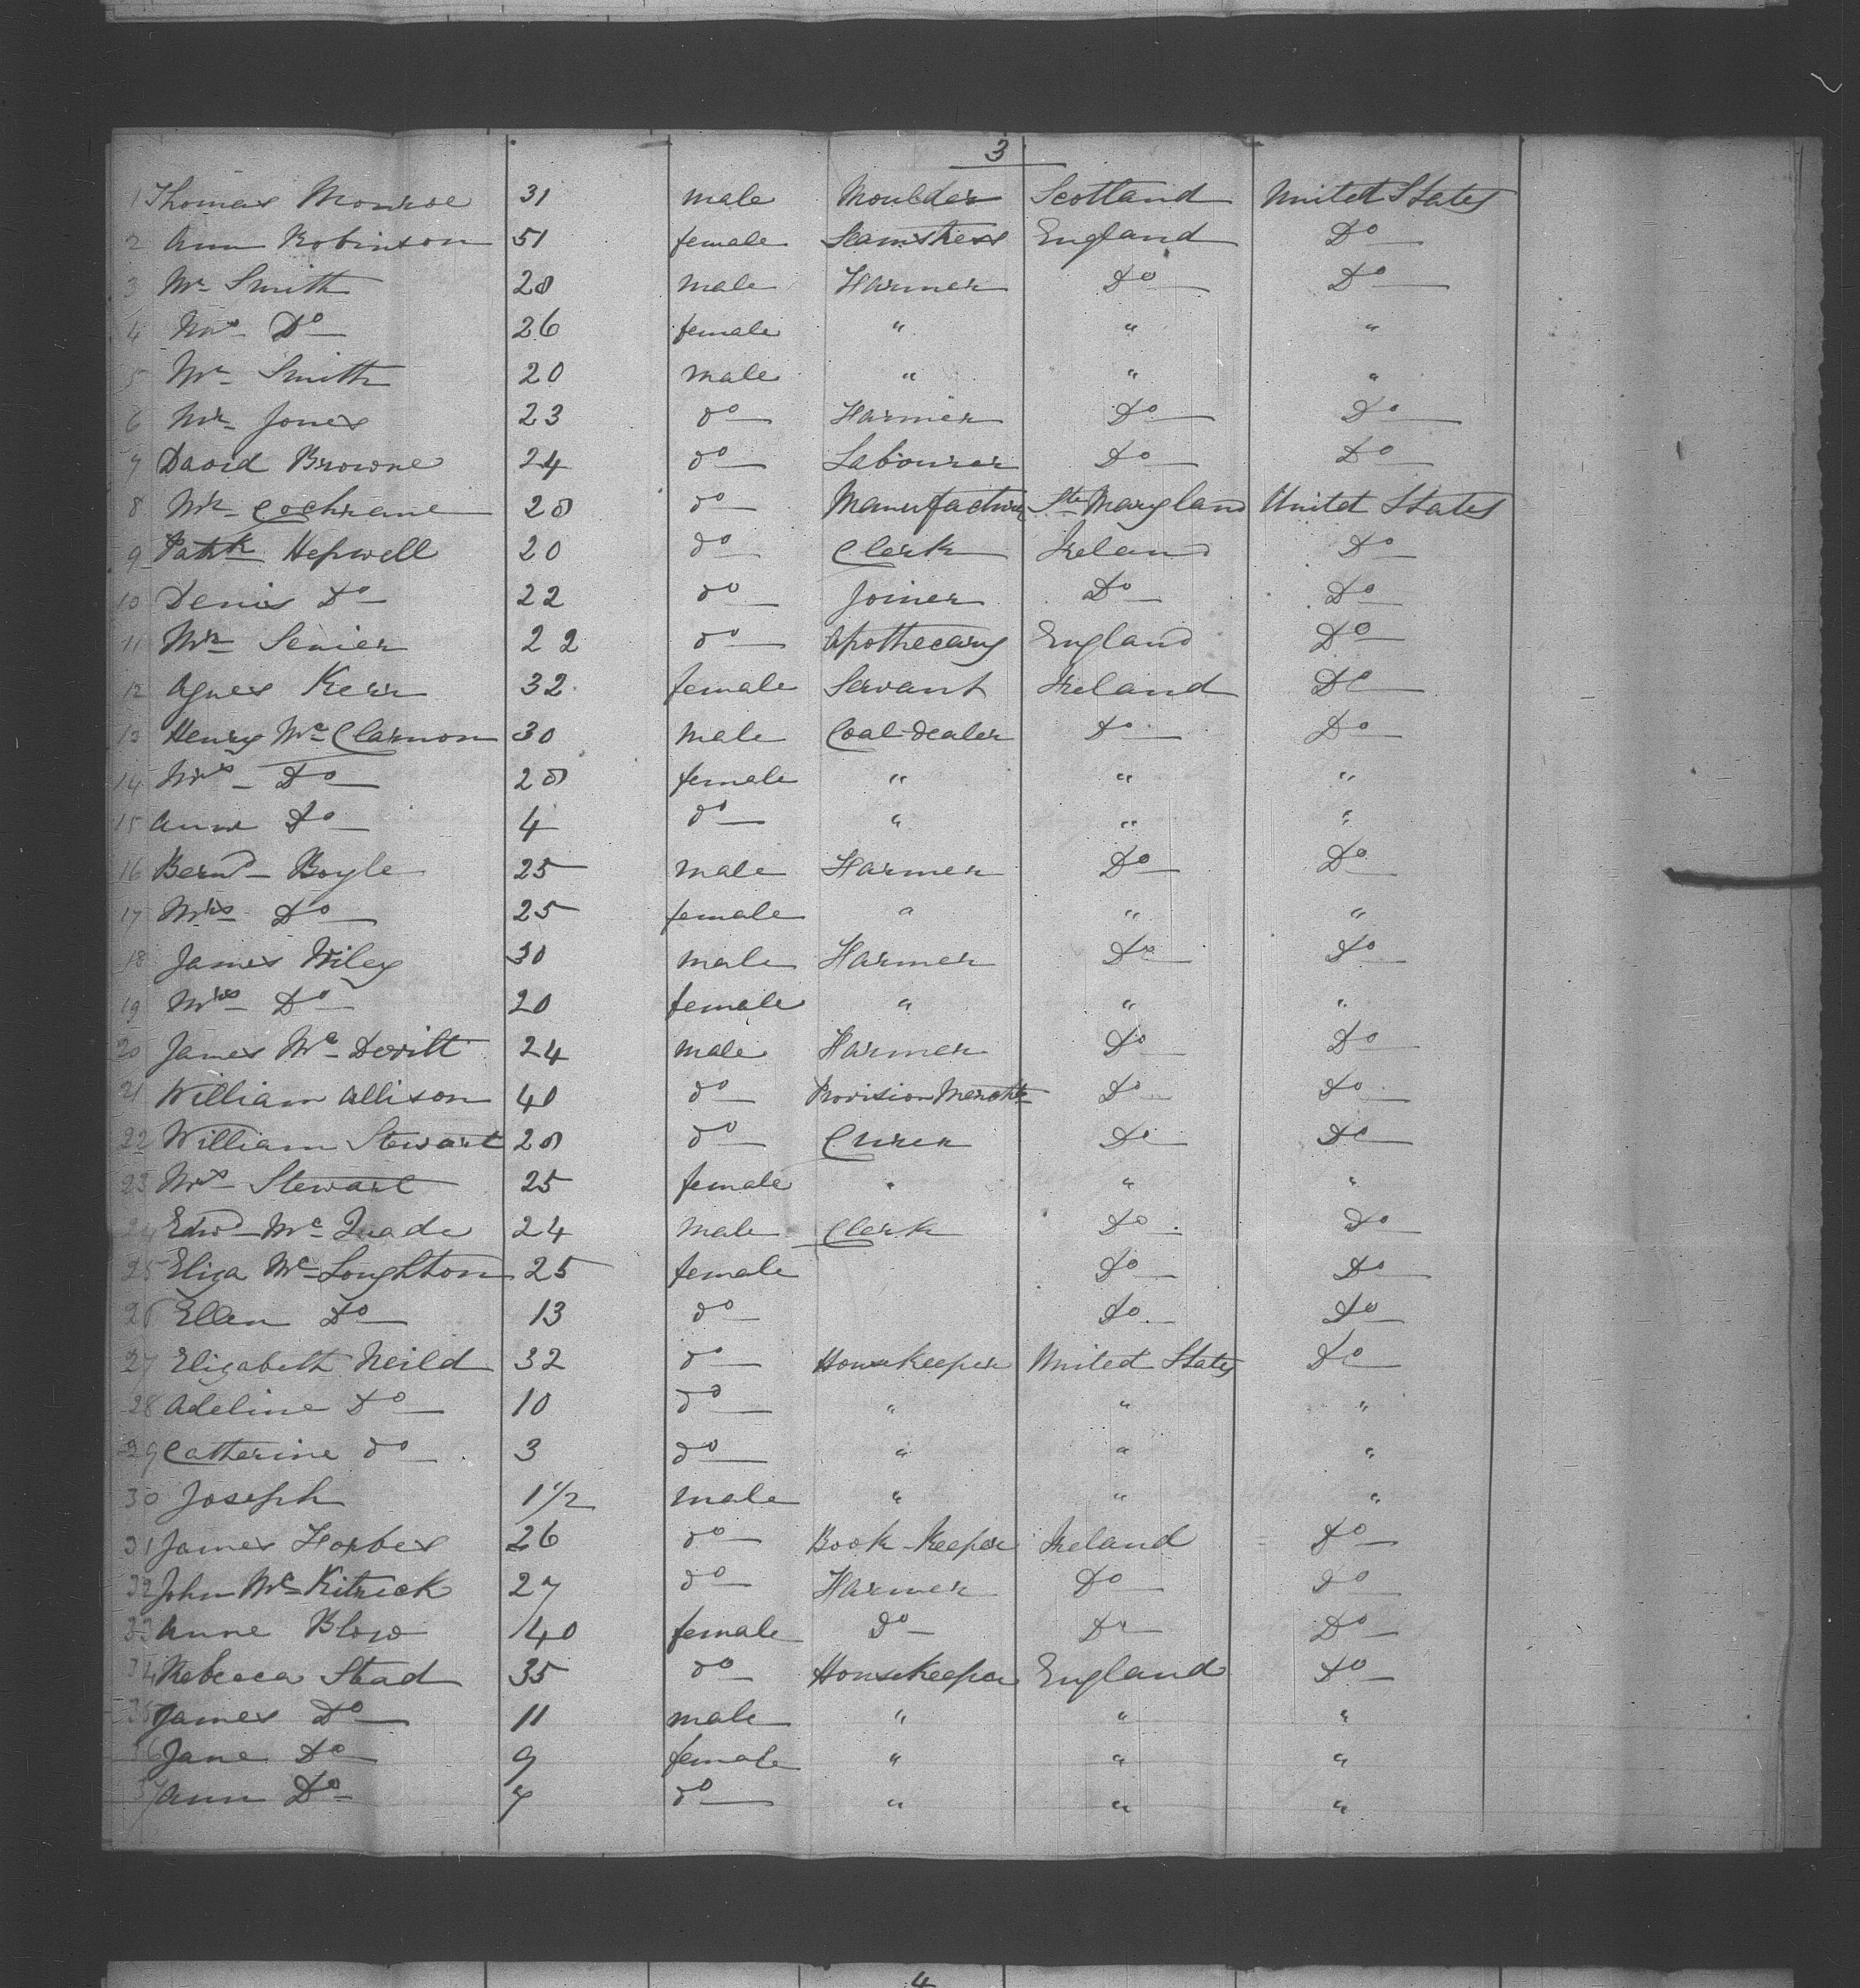 3
1 Thomas Monroe 31 male Moulder Scotland United States
2 Ann Robinson 51 female Seamstress England Do
3 Mr Smith 28 male Farmer Do Do
4 Mrs Do 26 female " " "
5 Mr Smith 20 male " " "
6 Mr Jones 23 do Farmer Do Do
7 David Browne 24 do Labourer Do Do
8 Mr Cochrane 28 do Manufacturer Maryland United States
9 Patk Hepwell 20 do Clerk Ireland Do
10 Denis Do 22 do Joiner Do Do
11 Mr Senier 22 do Apothecary England Do
12 Agnes Kerr 32 female Servant Ireland Do
13 Henry Mc Clarnon 30 male Coal-dealer Do Do
14 Mrs Do 28 female " " "
15 Anne Do 4 do " " "
16 Bernd Boyle 25 male Farmer Do Do
17 Mrs Do 25 female " " "
18 James Wiley 30 male Farmer Do Do
19 Mrs Do 20 female " " "
20 James Mc Devitt 24 male Farmer Do Do
21 William Allison 40 do Provision Mercht Do Do
22 William Stewart 28 do Do Do
23 Mrs Stewart 25 female " " "
24 Edwd Mc Quade 24 male Clerk Do Do
25 Eliza Mc Loughton 25 female Do Do
26 Ellen Do 13 do Do Do
27 Elizabeth Neild 32 do Housekeeper United States Do
28 Adeline Do 10 do " " "
29 Catherine do 3 do " " "
30 Joseph 1 1/2 male " " "
31 James Forbes 26 do Book-Keeper Ireland Do
32 John Mc Kitrick 27 do Farmer Do Do
33 Anne Blow 40 female do Do Do
34 Rebecca Stead 35 do Housekeeper England Do
35 James Do 11 male " " "
36 Jane Do 9 female " " "
37 Ann Do 7 do " " "
4